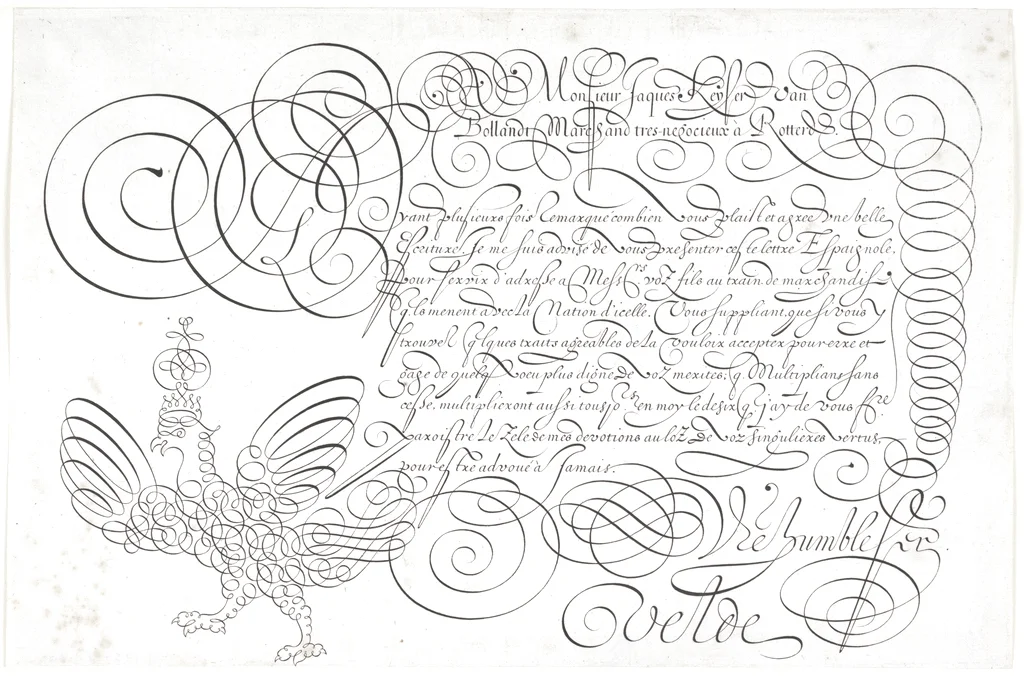 A Monsieur Jaques Keyser Van
Bollandt Marchand tres-negocieux à Rotterd.
Ayant plusieurs fois Remarqué combien vous plaist et agree Une belle
Escriture, Je me suis advisé de vous presenter ceste lettre Espaignole,
pour servir d'adresse a Mess.rs voz fils au train de marchandise
q.ls menent avec la Nation d'icelle. Vous suppliant, que si vous y
trouvez q'lques traits agreables de la vouloir accepter pour erre et
gage de quelq. voeu plus digne de voz merites; q. Multiplians sans
cesse, multiplieront aussi tousjo.rs en moy le desir q. j'ay de vous f.re
Paroistre le zele de mes devotions au loz de voz singulieres Vertus,
pour estre advoué à Jamais.
Vre humble Ser.
Velde